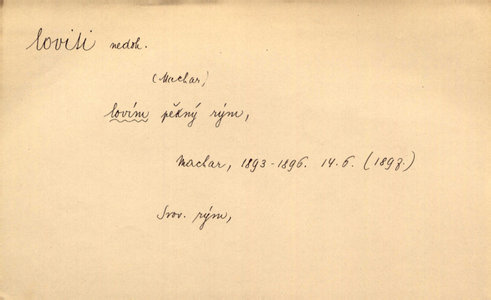 loviti nedok.
(Machar)
lovím pěkný rým,
Machar, 1893-1896. 14.6. (1897.)
Srov. rým,